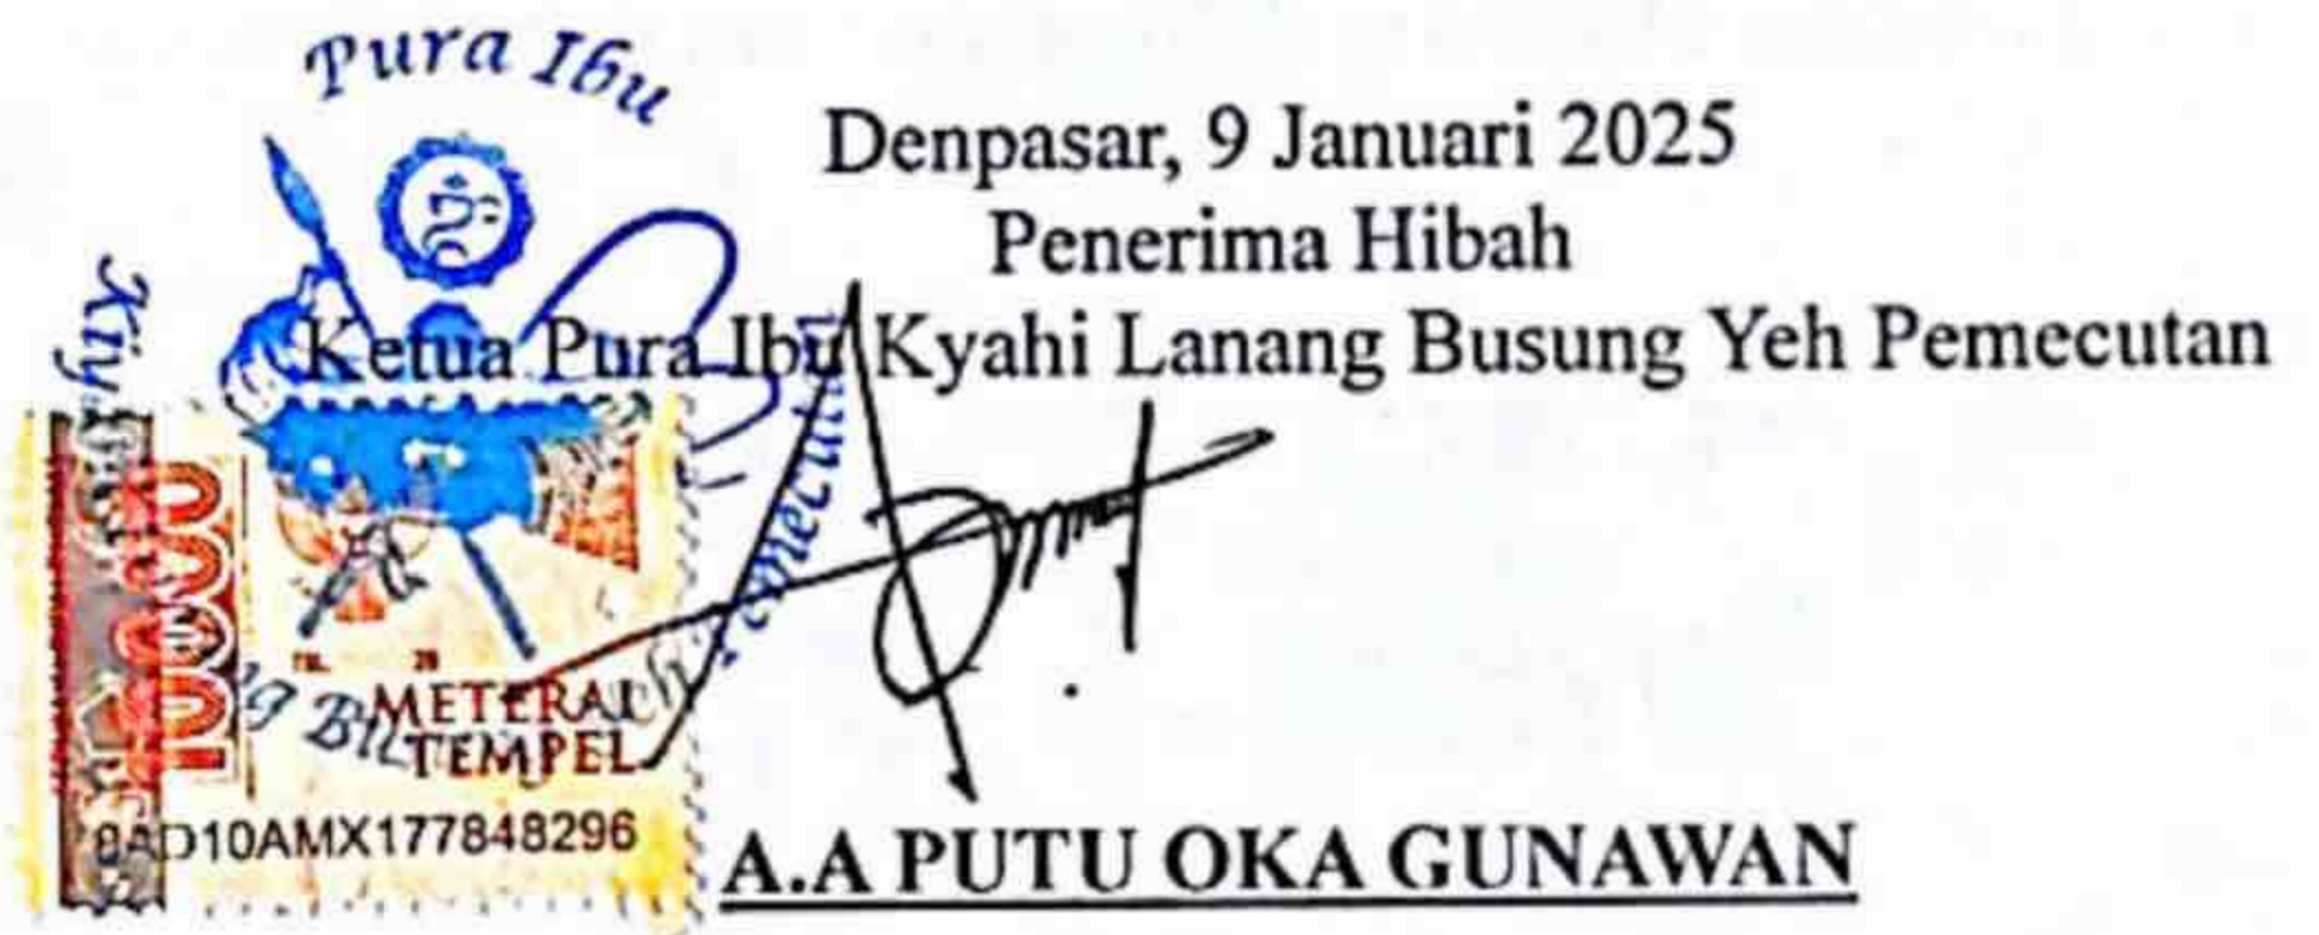 Pura Ibu
Denpasar, 9 Januari 2025
Penerima Hibah
Ketua Pura Ibu Kyahi Lanang Busung Yeh Pemecutan
10000
METERAI
TEMPEL
8AD10AMX177848296
A.A PUTU OKA GUNAWAN